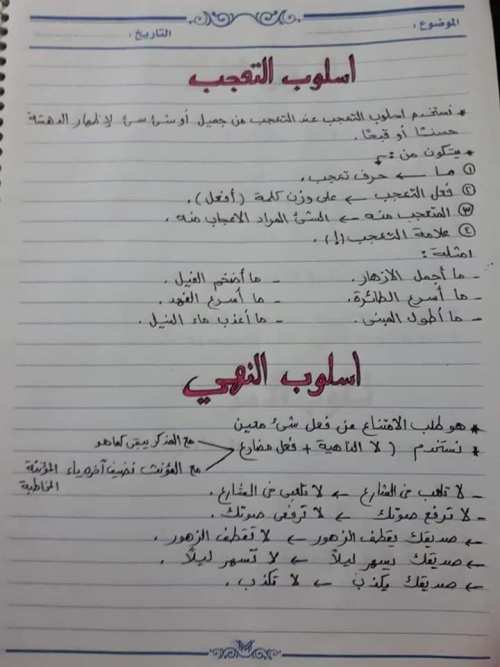 الموضوع:
التاريخ:
اسلوب التعجب
* نستخدم اسلوب التعجب عند التعجب من جميل أو شئ سئ لإظهار الدهشة
حسنًا أو قبحًا.
* يتكون من:
① ما ← حرف تعجب.
② فعل التعجب ← على وزن كلمة (أفعل).
③ المتعجب منه ← الشئ المراد الاعجاب منه.
④ علامة التعجب (!).
امثلة:
- ما أجمل الازهار. - ما أضخم الفيل.
- ما أسرع الطائرة. - ما أسرع الفهد.
- ما أطول المبنى. - ما أعذب ماء النيل.
اسلوب النهي
* هو طلب الامتناع عن فعل شئ معين
* نستخدم ( لا الناهية + فعل مضارع
مع المذكر يبقى كما هو
مع المؤنث نضيف آخره ياء المؤنثة المخاطبة
- لا تلعب في الشارع ← لا تلعبى فى الشارع.
- لا ترفع صوتك ← لا ترفعى صوتك.
← صديقك يقطف الزهور ← لا تقطف الزهور.
← صديقك يسهر ليلاً ← لا تسهر ليلاً.
← صديقك يكذب ← لا تكذب.